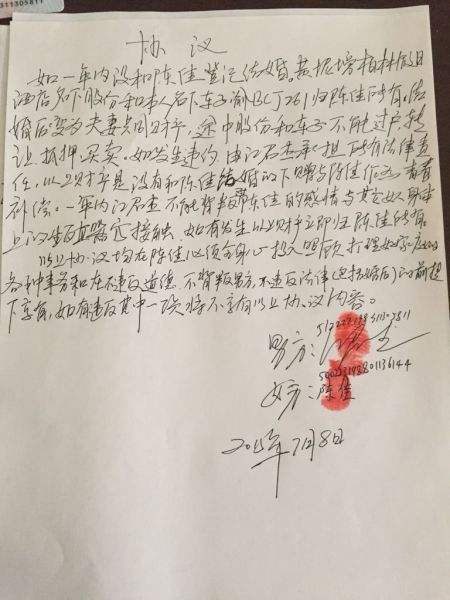 311305811
协议
如一年内没和陈佳登记结婚。
酒店名下股份和本人名下车子渝BCJ261归陈佳所有。结
婚后变为夫妻共同财产,途中股份和车子不能过户,转
让,抵押,买卖。如发生违约由江君杰承担所有法律责
任,以上财产是没有和陈佳结婚的下赠与陈佳作为青春
补偿。一年内江君杰不能背叛陈佳的感情与其它女人身体
上汉生直接接触,如有发生以上财产立即归陈佳所有。
以上协议均在陈佳必须全身心投入照顾打理好家庭的
各种事务和在不违反道德,不背叛男方,不违反法律(包括婚后)的前提
下享有,如有违反其中一项将不享有以上协议内容。
男方:
女方:陈佳
2015年7月8日